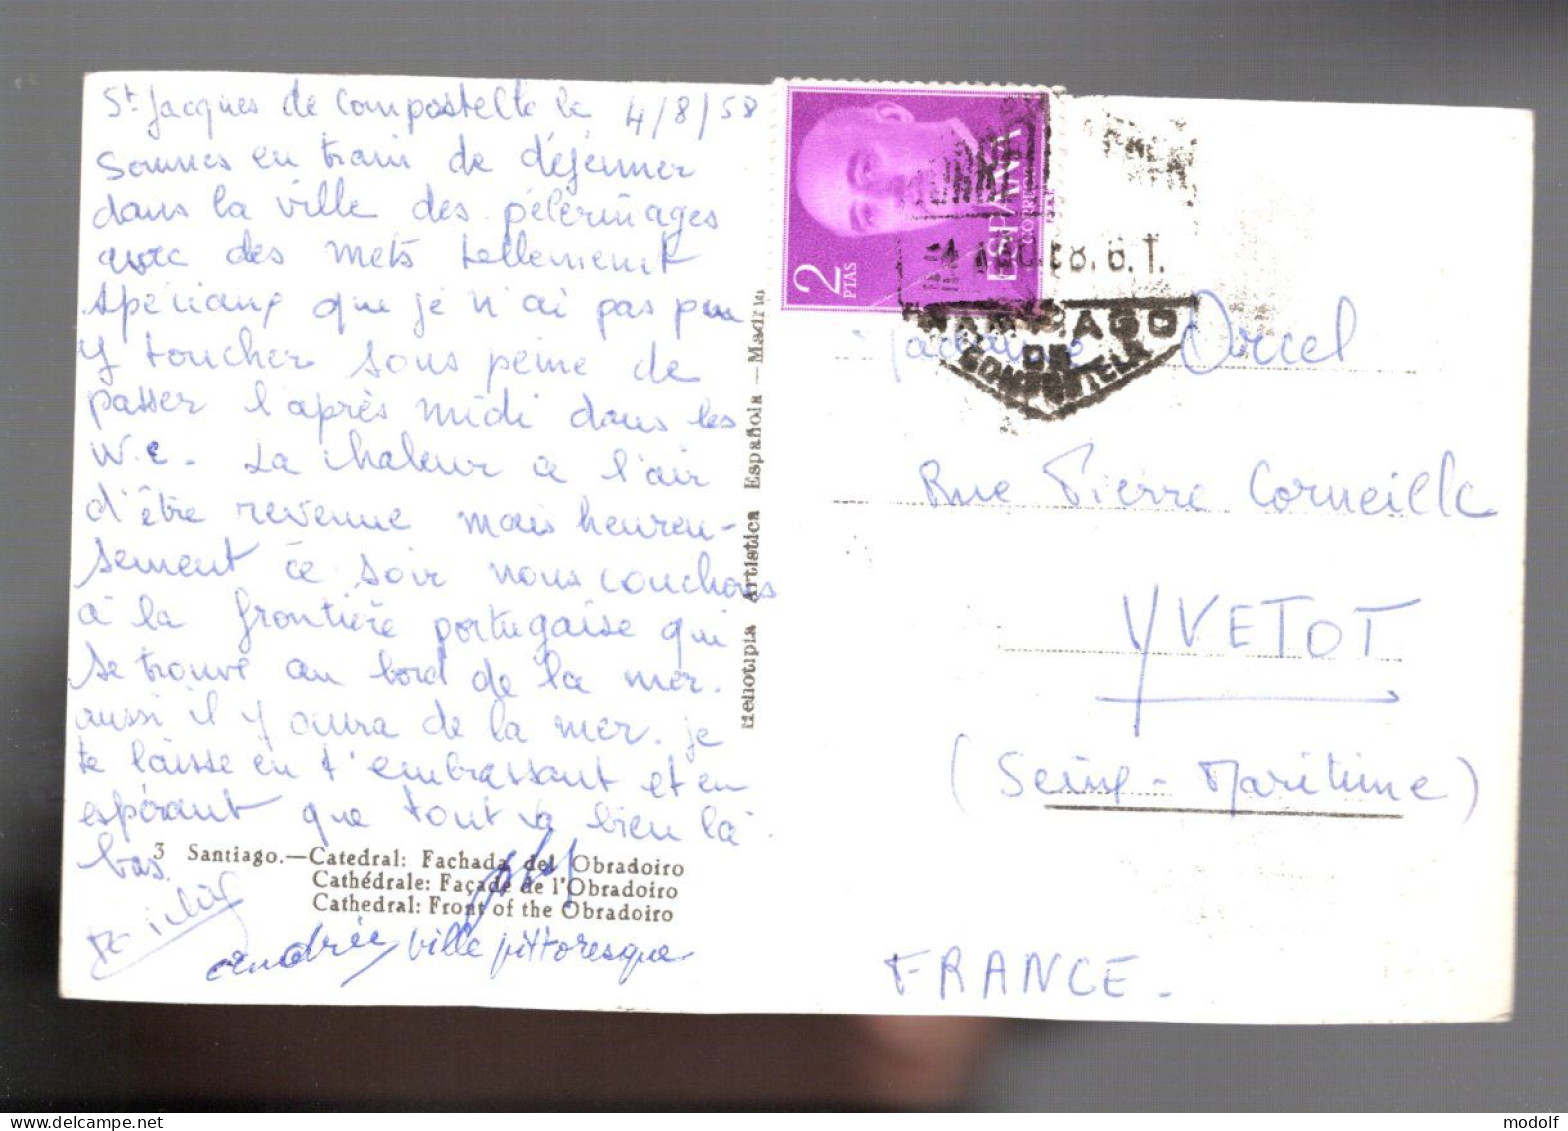 St Jacques de Compostelle le 4/8/58
Sommes en train de déjeuner
dans la ville des pélérinages
avec des mets tellement
spéciaux que je n'ai pas pu
y toucher sous peine de
passer l'après midi dans les
W.C. La chaleur a l'air
d'être revenue mais heureu-
sement ce soir nous couchons
à la frontière portugaise qui
se trouve au bord de la mer.
aussi il y aura de la mer. je
te laisse en t'embrassant et en
espérant que tout va bien là
bas.
3 Santiago.—Catedral: Fachada del Obradoiro
Cathédrale: Façade de l'Obradoiro
Cathedral: Front of the Obradoiro
andrée ville pittoresque
Heliotipia Artistica Española—Madrid
2
PTAS
ESPAÑA
CORREOS
SANTIAGO
DE
COMPOSTELA
Orcel
Rue Pierre Corneille
YVETOT
(Seine-Maritime)
FRANCE.
modolf